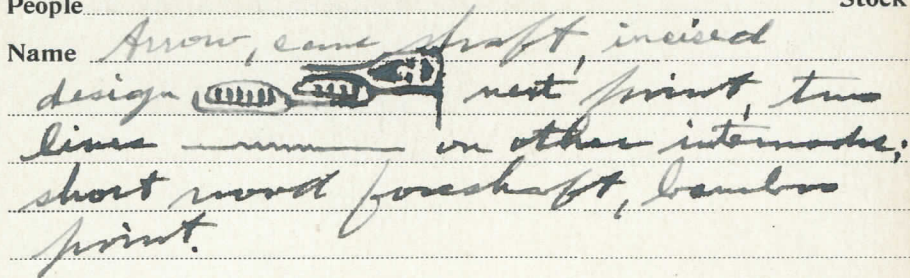 People Stock
Name Arrow, cane shaft, incised
design next point, two
lines on other internodes;
short wood foreshaft, bamboo
point.